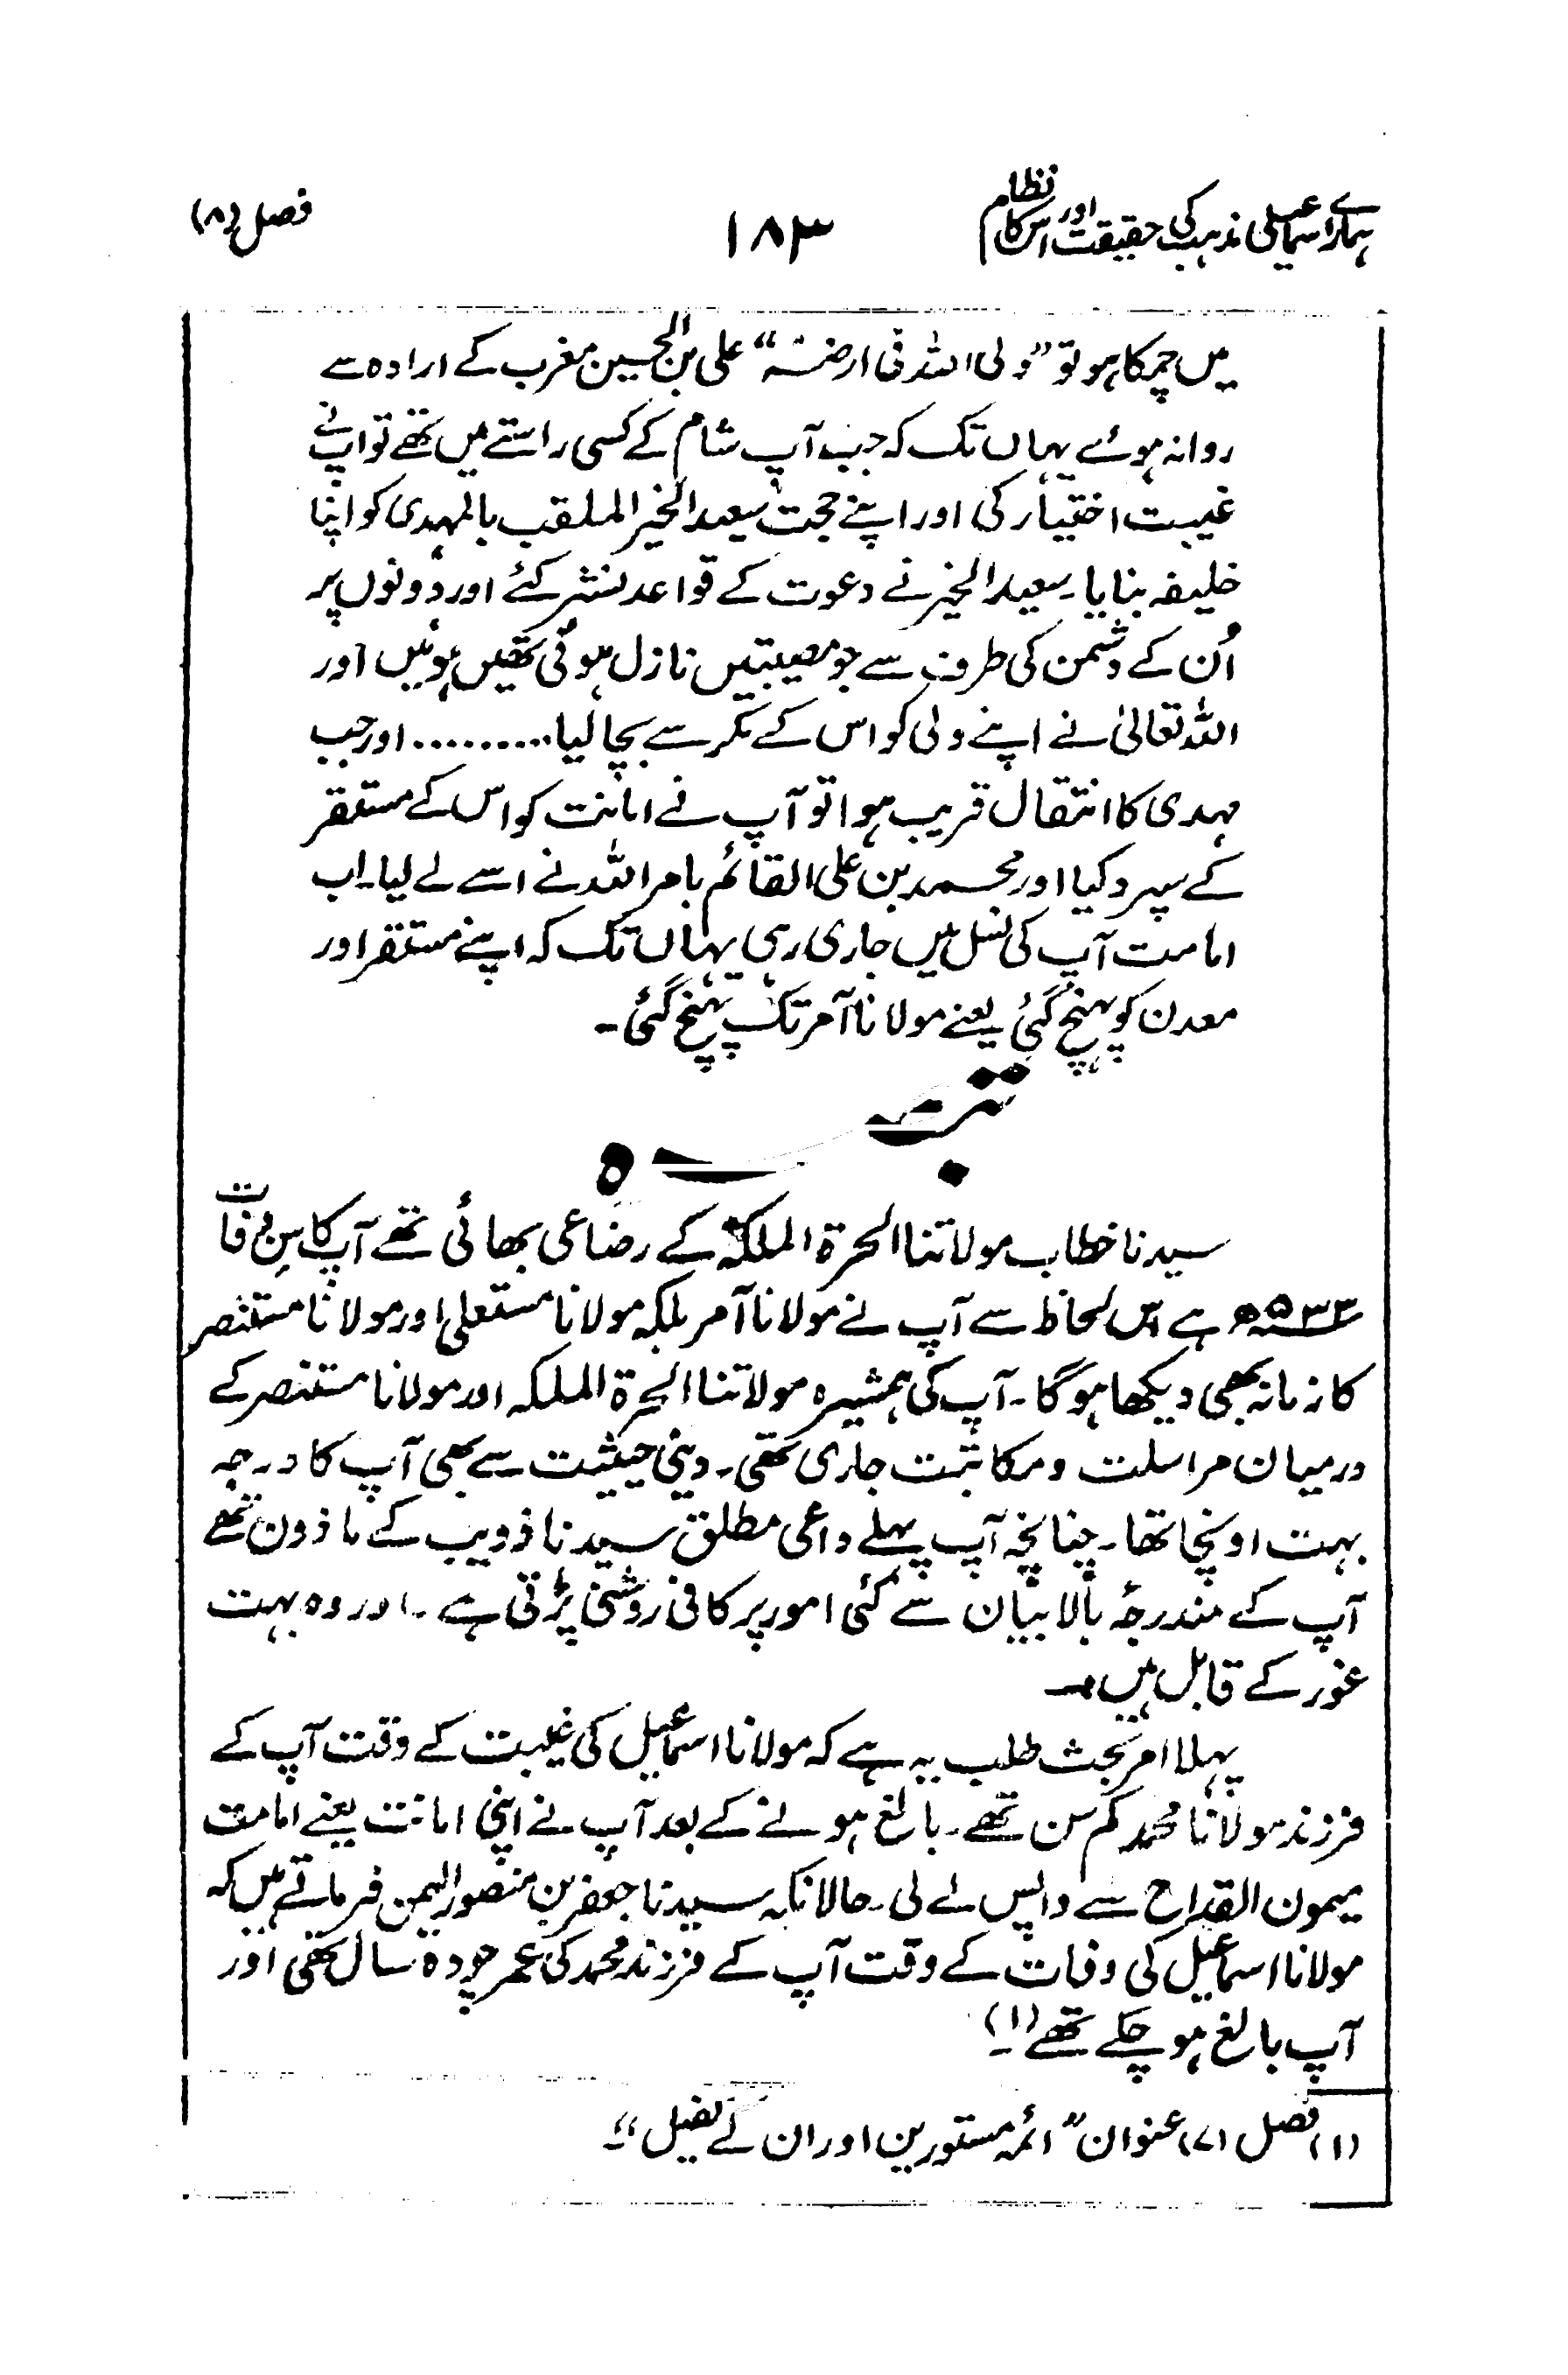 ہمارے اسماعیلی مذہب کی حقیقت اور اس کا نظام ۱۸۳ فصل (۸)
میں چمکا ہو تو "ولی اللہ فی ارضہ" علی بن الحسین مغرب کے ارادہ سے
روانہ ہوئے یہاں تک کہ جب آپ شام کے کسی راستے میں تھے تو آپ نے
غیبت اختیار کی اور اپنے حجت سعید الخیر الملقب بالمہدی کو اپنا
خلیفہ بنایا۔ سعید الخیر نے دعوت کے قواعد نشر کئے اور دونوں پر
اُن کے دشمن کی طرف سے جو مصیبتیں نازل ہوئی تھیں ہوئیں اور
اللہ تعالیٰ نے اپنے ولی کو اس کے مکر سے بچا لیا.......... اور جب
مہدی کا انتقال قریب ہوا تو آپ نے امانت کو اس کے مستقر
کے سپرد کیا اور محمد بن علی القائم بامر اللہ نے اسے لے لیا۔ اب
امامت آپ کی نسل میں جاری رہی یہاں تک کہ اپنے مستقر اور
معدن کو پہنچ گئی یعنے مولانا آمر تک پہنچ گئی۔
تبصرہ
سیدنا خطاب مولاتنا الحرۃ الملکہ کے رضاعی بھائی تھے آپ کا سِن وفات
۵۳۳ھ ہے اس لحاظ سے آپ نے مولانا آمر بلکہ مولانا مستعلی اور مولانا مستنصر
کا زمانہ بھی دیکھا ہوگا۔ آپ کی ہمشیرہ مولاتنا الحرۃ الملکہ اور مولانا مستنصر کے
درمیان مراسلت و مکاتبت جاری تھی۔ دینی حیثیت سے بھی آپ کا درجہ
بہت اونچا تھا۔ چنانچہ آپ پہلے داعی مطلق سیدنا ذویب کے ماذون تھے
آپ کے مندرجۂ بالا بیان سے کئی امور پر کافی روشنی پڑتی ہے۔ اور وہ بہت
غور کے قابل ہیں۔
پہلا امر بحث طلب یہ ہے کہ مولانا اسماعیل کی غیبت کے وقت آپ کے
فرزند مولانا محمد کم سن تھے۔ بالغ ہونے کے بعد آپ نے اپنی امانت یعنے امامت
میمون القداح سے واپس لے لی۔ حالانکہ سیدنا جعفر بن منصور الیمن فرماتے ہیں کہ
مولانا اسماعیل کی وفات کے وقت آپ کے فرزند محمد کی عمر چودہ سال تھی اور
آپ بالغ ہو چکے تھے (۱)۔
(۱) فصل (۷) عنوان "ائمہ مستورین اور ان کے کفیل"۔